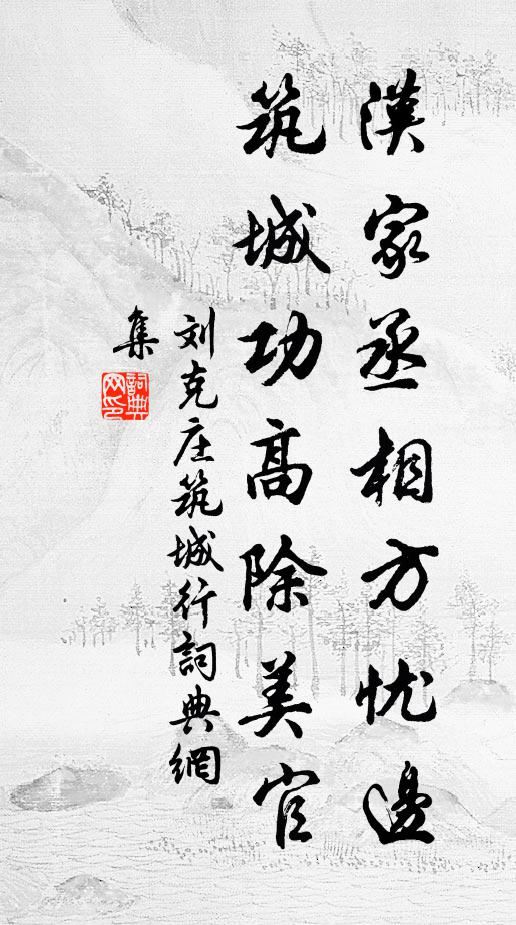 漢家丞相方忧邊
筑城功高除美官
刘克庄筑城行詞典網
集
詞典網印